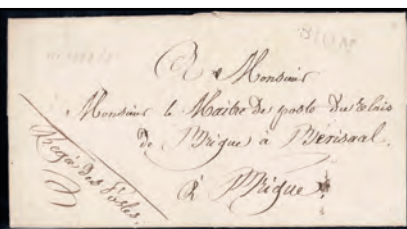 A Monsieur
Monsieur le Maitre de poste du relais
de Brigue à Bérisaal.
à Brigue
Régie des Postes.